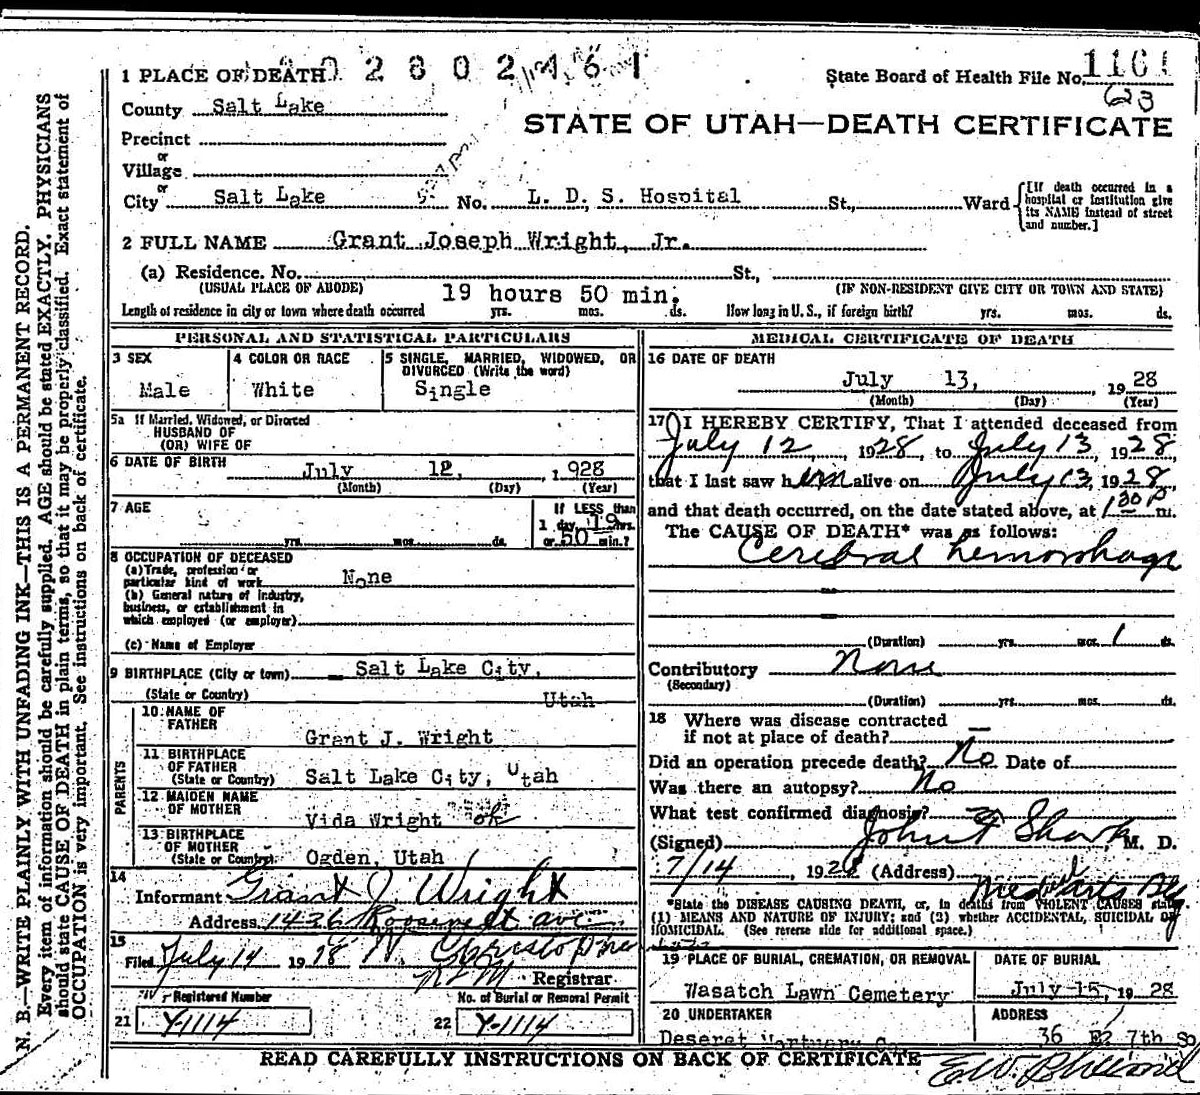 N. B.—WRITE PLAINLY WITH UNFADING INK—THIS IS A PERMANENT RECORD.
Every item of information should be carefully supplied. AGE should be stated EXACTLY. PHYSICIANS
should state CAUSE OF DEATH in plain terms, so that it may be properly classified. Exact statement of
OCCUPATION is very important. See instructions on back of certificate.
1 PLACE OF DEATH
State Board of Health File No.
623
County Salt Lake
STATE OF UTAH—DEATH CERTIFICATE
Precinct
or
Village
or
City Salt Lake No. L. D. S. Hospital St., Ward
[If death occurred in a
hospital or institution give
its NAME instead of street
and number.]
2 FULL NAME Grant Joseph Wright, Jr.
(a) Residence. No. St.,
(USUAL PLACE OF ABODE) (IF NON-RESIDENT GIVE CITY OR TOWN AND STATE)
19 hours 50 min.
Length of residence in city or town where death occurred yrs. mos. ds. How long in U. S., if foreign birth? yrs. mos. ds.
PERSONAL AND STATISTICAL PARTICULARS
3 SEX
Male
4 COLOR OR RACE
White
5 SINGLE, MARRIED, WIDOWED, OR
DIVORCED (Write the word)
Single
5a If Married, Widowed, or Divorced
HUSBAND OF
(OR) WIFE OF
6 DATE OF BIRTH
July 12, 1928
(Month) (Day) (Year)
7 AGE
yrs. mos. ds.
If LESS than
1 day, 19 hrs.
or 50 min.?
8 OCCUPATION OF DECEASED
(a) Trade, profession or
particular kind of work None
(b) General nature of industry,
business, or establishment in
which employed (or employer)
(c) Name of Employer
9 BIRTHPLACE (City or town) Salt Lake City,
(State or Country) Utah
PARENTS
10 NAME OF
FATHER
Grant J. Wright
11 BIRTHPLACE
OF FATHER
(State or Country) Salt Lake City, Utah
12 MAIDEN NAME
OF MOTHER
Vida Wright ok
13 BIRTHPLACE
OF MOTHER
(State or Country) Ogden, Utah
14
Informant Grant J. Wright
Address 1436 Roosevelt ave
15
Filed July 14 1928
Registrar.
Registered Number No. of Burial or Removal Permit
21 Y-1114 22 Y-1114
MEDICAL CERTIFICATE OF DEATH
16 DATE OF DEATH
July 13, 1928
(Month) (Day) (Year)
17 I HEREBY CERTIFY, That I attended deceased from
July 12, 1928, to July 13, 1928,
that I last saw him alive on July 13, 1928,
and that death occurred, on the date stated above, at 1 30 P m.
The CAUSE OF DEATH* was as follows:
Cerebral hemorrhage
(Duration) yrs. mos. 1 ds.
Contributory None
(Secondary)
(Duration) yrs. mos. ds.
18 Where was disease contracted
if not at place of death? —
Did an operation precede death? No Date of
Was there an autopsy? No
What test confirmed diagnosis?
(Signed) John F Sharp M. D.
7/14, 1928 (Address) Medical Arts Blg
*State the DISEASE CAUSING DEATH, or, in deaths from VIOLENT CAUSES state
(1) MEANS AND NATURE OF INJURY; and (2) whether ACCIDENTAL, SUICIDAL OR
HOMICIDAL. (See reverse side for additional space.)
19 PLACE OF BURIAL, CREMATION, OR REMOVAL
Wasatch Lawn Cemetery
DATE OF BURIAL
July 15, 1928
20 UNDERTAKER
Deseret Mortuary Co.
ADDRESS
36 E. 7th So
READ CAREFULLY INSTRUCTIONS ON BACK OF CERTIFICATE